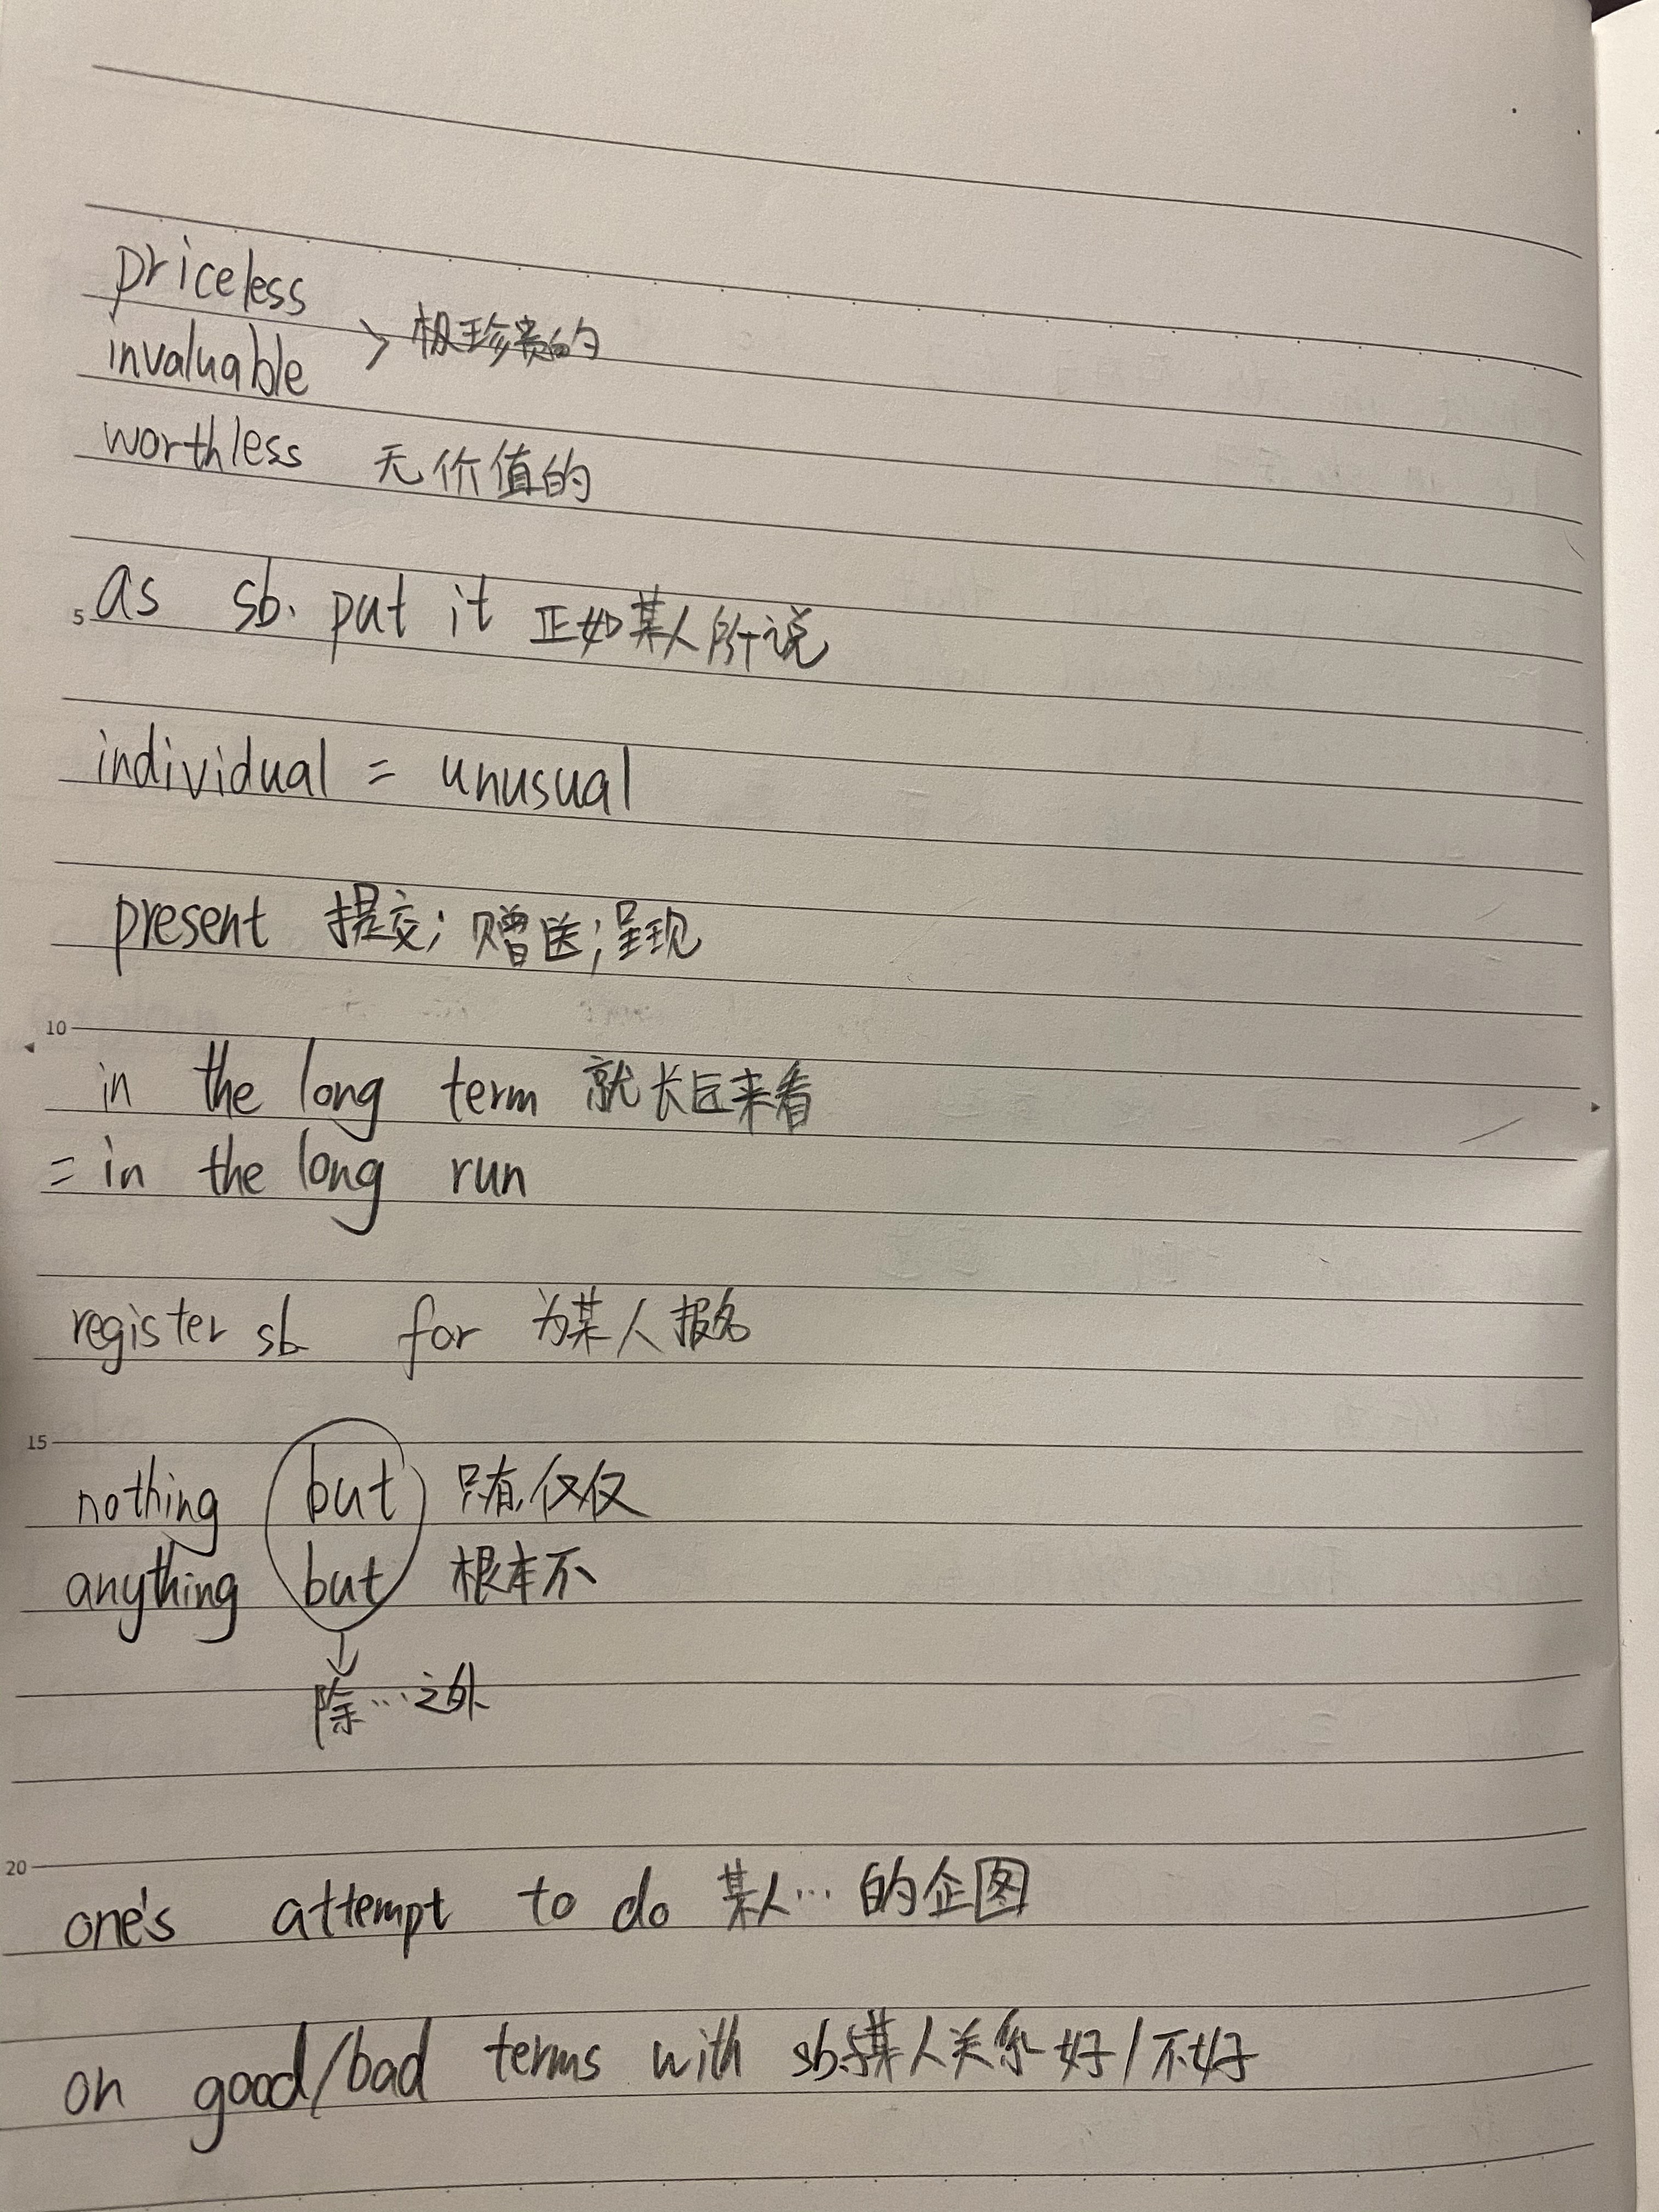 priceless
invaluable > 极珍贵的
worthless 无价值的
5 as sb. put it 正如某人所说
individual = unusual
present 提交; 赠送; 呈现
10
in the long term 就长远来看
= in the long run
register sb for 为某人报名
15
nothing but 只有, 仅仅
anything but 根本不
除…之外
20
one's attempt to do 某人…的企图
on good/bad terms with sb. 与某人关系好/不好